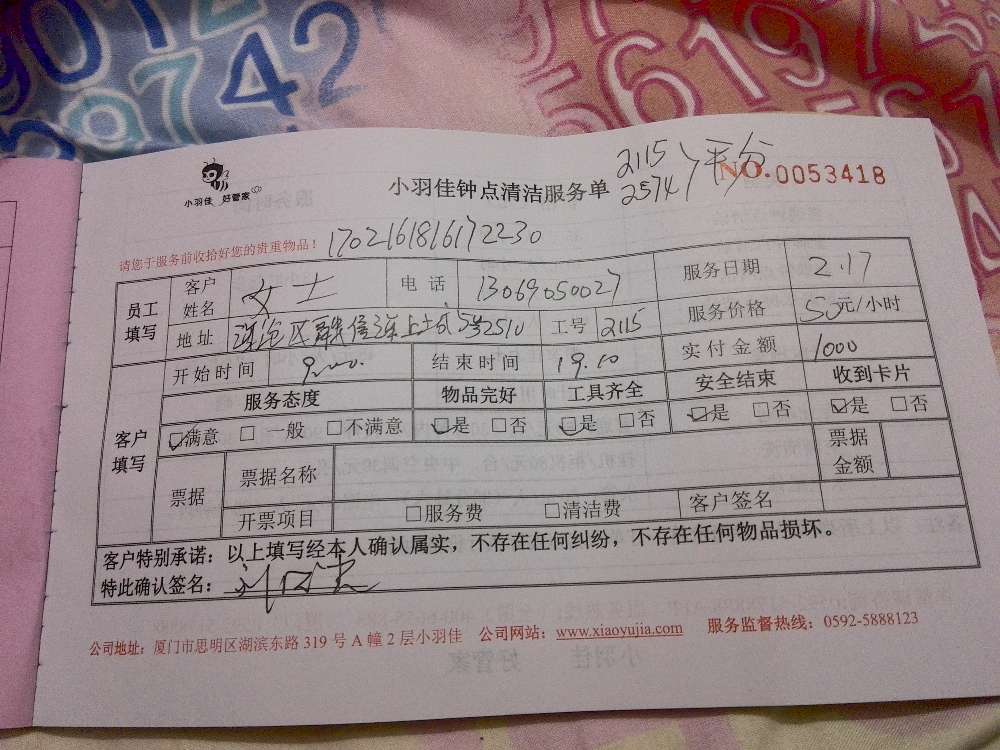 小羽佳 好管家
小羽佳钟点清洁服务单
2115
2574
平分
NO.0053418
请您于服务前收拾好您的贵重物品！
1702161816172230
员工填写
客户姓名 女士 电话 13069050027 服务日期 2.17
地址 5号2510 工号 2115 服务价格 50元/小时
客户填写
开始时间 9:00 结束时间 19.10 实付金额 1000
服务态度 物品完好 工具齐全 安全结束 收到卡片
满意 一般 不满意 是 否 是 否 是 否 是 否
票据 票据名称 票据金额
开票项目 服务费 清洁费 客户签名
客户特别承诺：以上填写经本人确认属实，不存在任何纠纷，不存在任何物品损坏。
特此确认签名：
公司地址：厦门市思明区湖滨东路 319 号 A 幢 2 层小羽佳 公司网站：www.xiaoyujia.com 服务监督热线：0592-5888123